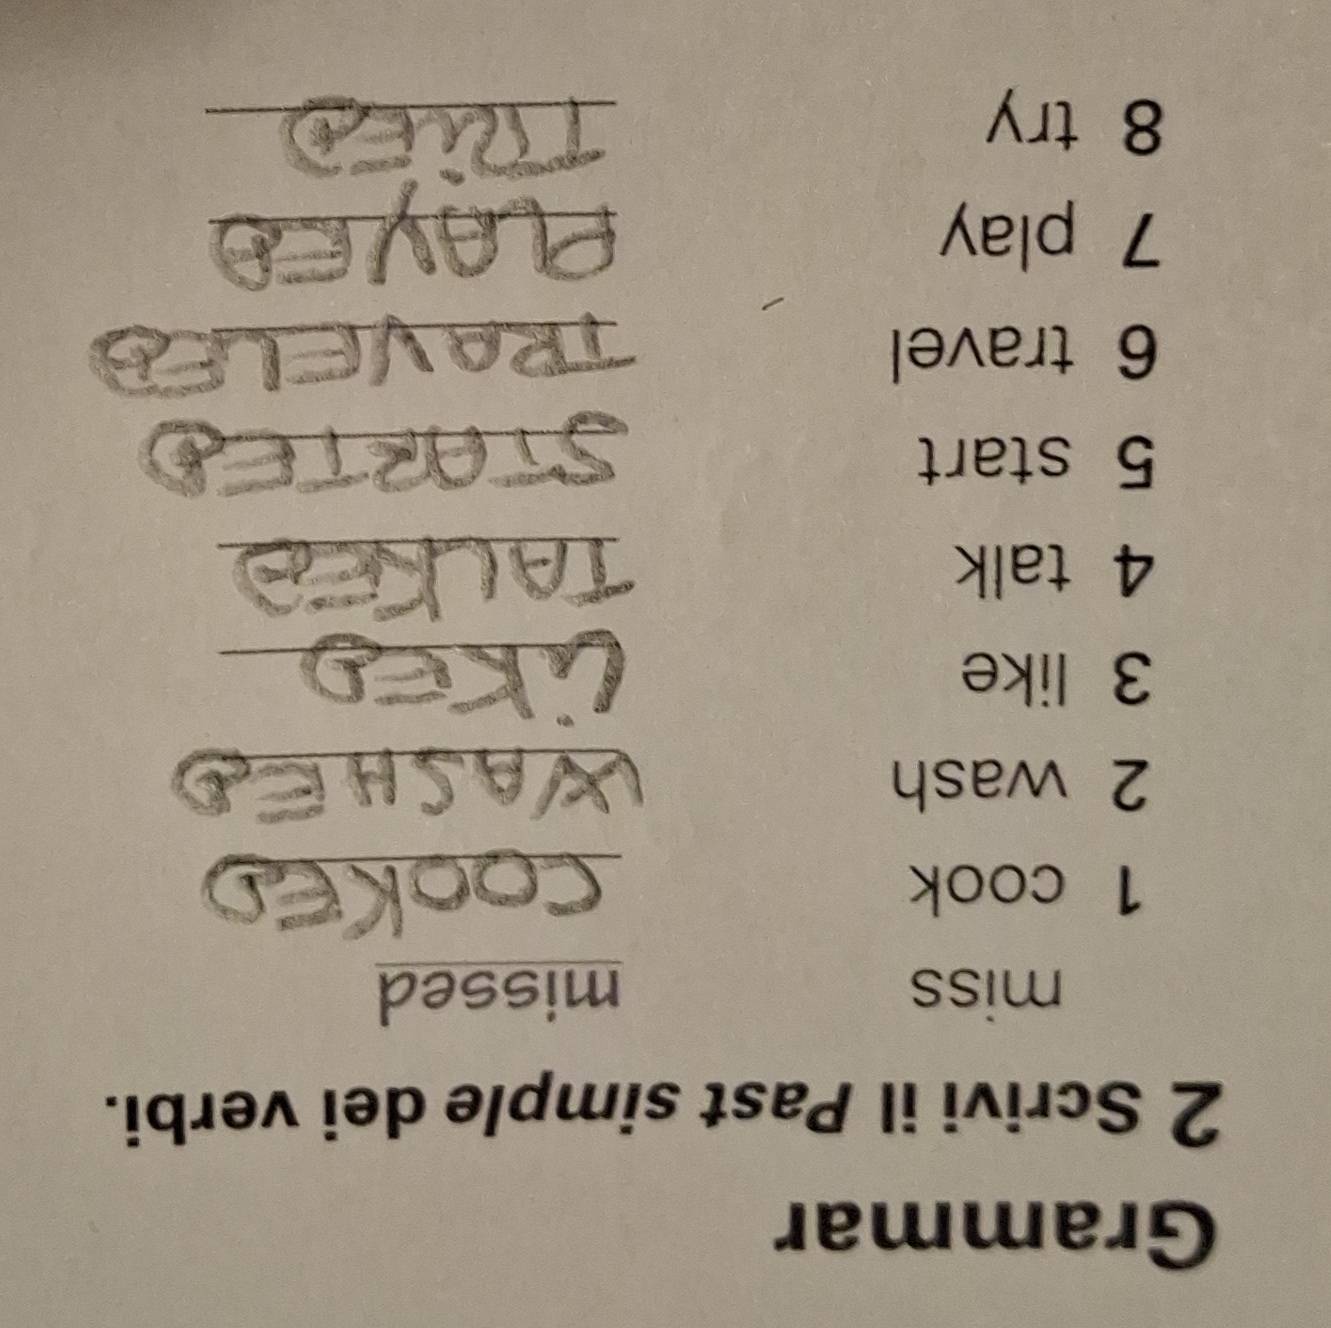 Grammar
2 Scrivi il Past simple dei verbi.
miss missed
1 cook COOKED
2 wash WASHED
3 like LiKED
4 talk TALKED
5 start STARTED
6 travel TRAVELED
7 play PLAYED
8 try TRiED